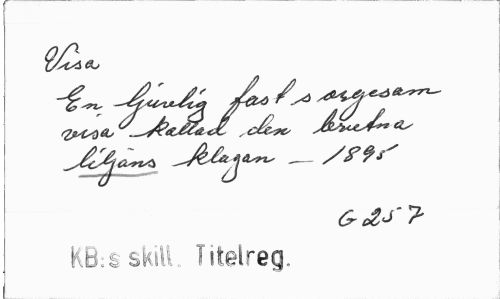 Visa
En ljuvlig fast sorgesam
visa kallad den brutna
liljans klagan – 1895
G 257
KB:s skill. Titelreg.